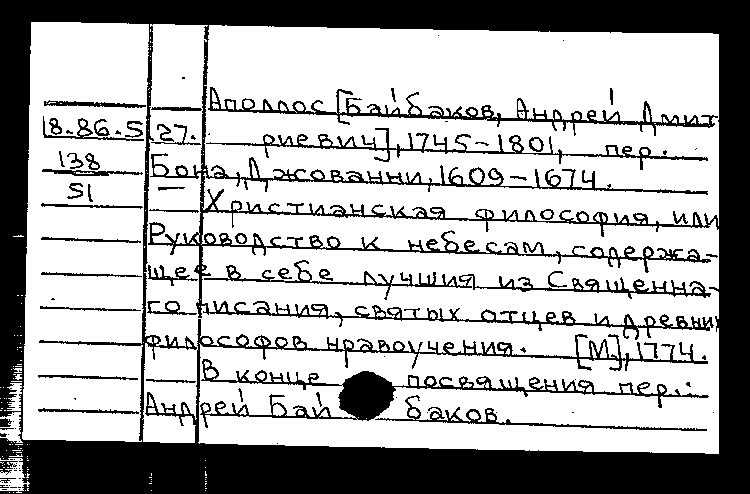 Аполлос [Байбаков, Андрей Дмит-
18.86.5 27. риевич], 1745-1801, пер.
138 Бона, Джованни, 1609-1674.
51 Христианская философия, или
Руководство к небесам, содержа-
щее в себе лучшия из Священна-
го писания, святых отцев и древних
философов нравоучения. [М], 1774.
В конце посвящения пер.:
Андрей Байбаков.